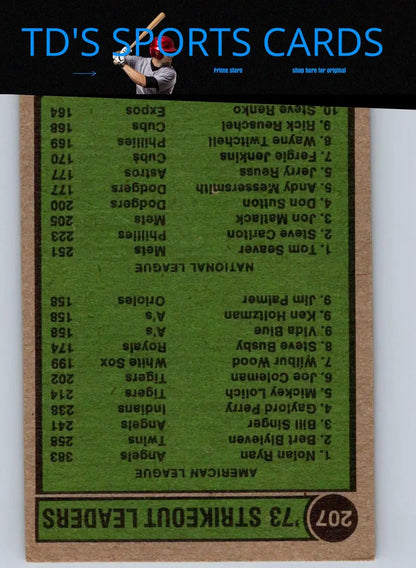 TD'S SPORTS CARDS
Prime store
shop here for original
207 '73 STRIKEOUT LEADERS
AMERICAN LEAGUE
1. Nolan Ryan Angels 383
2. Bert Blyleven Twins 258
3. Bill Singer Angels 241
4. Gaylord Perry Indians 238
5. Mickey Lolich Tigers 214
6. Joe Coleman Tigers 202
7. Wilbur Wood White Sox 199
8. Steve Busby Royals 174
9. Vida Blue A's 158
9. Ken Holtzman A's 158
9. Jim Palmer Orioles 158
NATIONAL LEAGUE
1. Tom Seaver Mets 251
2. Steve Carlton Phillies 223
3. Jon Matlack Mets 205
4. Don Sutton Dodgers 200
5. Andy Messersmith Dodgers 177
5. Jerry Reuss Astros 177
7. Fergie Jenkins Cubs 170
8. Wayne Twitchell Phillies 169
9. Rick Reuschel Cubs 168
10. Steve Renko Expos 164